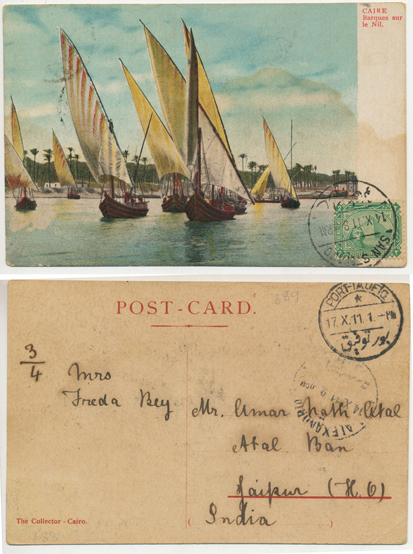 CAIRE
Barques sur
le Nil.
POST-CARD.
PORT-TAUFIQ
17.X.11.1.-PM
بور توفيق
3/4
Mrs
Freda Bey
Mr. Amar Nath Atal
Atal Ban
Jaipur
India
The Collector - Cairo.